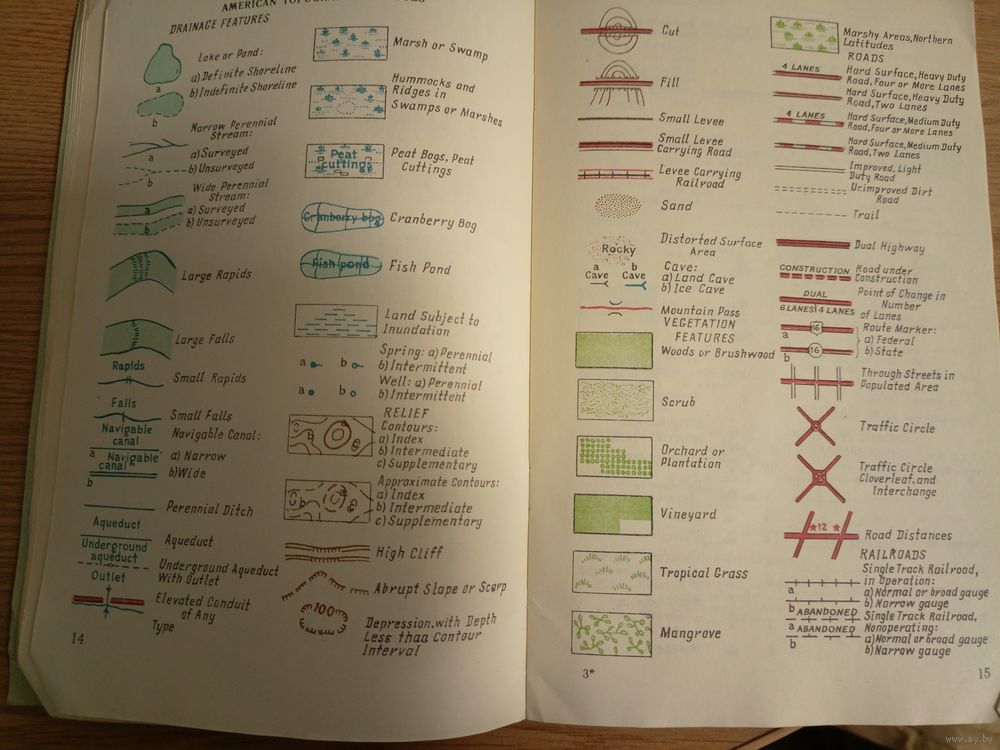 AMERICAN
DRAINAGE FEATURES
Lake or Pond:
a) Definite Shoreline
b) Indefinite Shoreline
a
b
Narrow Perennial
Stream:
a) Surveyed
b) Unsurveyed
a
b
Wide Perennial
Stream:
a) Surveyed
b) Unsurveyed
a
b
Large Rapids
Large Falls
Rapids
Small Rapids
Falls
Small Falls
Navigable
canal
Navigable Canal:
a Navigable
canal
a) Narrow
b) Wide
b
Perennial Ditch
Aqueduct
Aqueduct
Underground
aqueduct
Underground Aqueduct
With Outlet
Outlet
Elevated Conduit
of Any
Type
14
Marsh or Swamp
Hummocks and
Ridges in
Swamps or Marshes
Peat
cuttings
Peat Bogs, Peat
Cuttings
Cranberry bog
Cranberry Bog
Fish pond
Fish Pond
Land Subject to
Inundation
Spring: a) Perennial
b) Intermittent
a b
Well: a) Perennial
b) Intermittent
a b
RELIEF
Contours:
a) Index
b) Intermediate
c) Supplementary
a
b
c
Approximate Contours:
a) Index
b) Intermediate
c) Supplementary
a
b
c
High Cliff
Abrupt Slope or Scarp
100
Depression.with Depth
Less than Contour
Interval
Cut
Fill
Small Levee
Small Levee
Carrying Road
Levee Carrying
Railroad
Sand
Rocky
Distorted Surface
Area
a b
Cave Cave
Cave:
a) Land Cave
b) Ice Cave
Mountain Pass
VEGETATION
FEATURES
Woods or Brushwood
Scrub
Orchard or
Plantation
Vineyard
Tropical Grass
Mangrove
3*
Marshy Areas, Northern
Latitudes
ROADS
4 LANES
Hard Surface, Heavy Duty
Road, Four or More Lanes
Hard Surface, Heavy Duty
Road, Two Lanes
4 LANES
Hard Surface, Medium Duty
Road, Four or More Lanes
Hard Surface, Medium Duty
Road, Two Lanes
Improved, Light
Duty Road
Unimproved Dirt
Road
Trail
Dual Highway
CONSTRUCTION
Road under
Construction
DUAL
6 LANES 4 LANES
Point of Change in
Number
of Lanes
16
a
16
b
Route Marker:
a) Federal
b) State
Through Streets in
Populated Area
Traffic Circle
Traffic Circle
Cloverleaf, and
Interchange
12
Road Distances
RAILROADS
Single Track Railroad,
in Operation:
a) Normal or broad gauge
b) Narrow gauge
a
b ABANDONED
a ABANDONED
b
Single Track Railroad,
Nonoperating:
a) Normal or broad gauge
b) Narrow gauge
15
www.ay.by